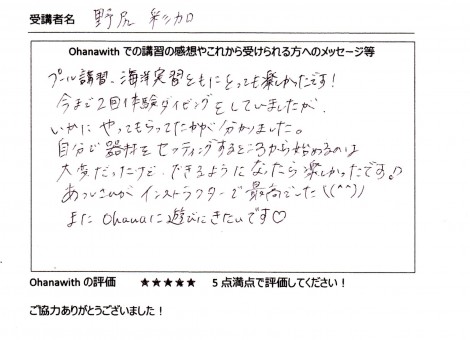 受講者名 野尻 彩加
Ohanawith での講習の感想やこれから受けられる方へのメッセージ等
プール講習、海洋実習ともにとっても楽しかったです！
今まで2回体験ダイビングをしていましたが、
いかにやってもらってたかが分かりました。
自分で器材をセッティングするところから始めるのは
大変だったけど、できるようになったら楽しかったです♪
あっこさんがインストラクターで最高でした\(^^)/
また Ohanaに遊びにきたいです♡
Ohanawith の評価 ★★★★★ 5 点満点で評価してください！
ご協力ありがとうございました！